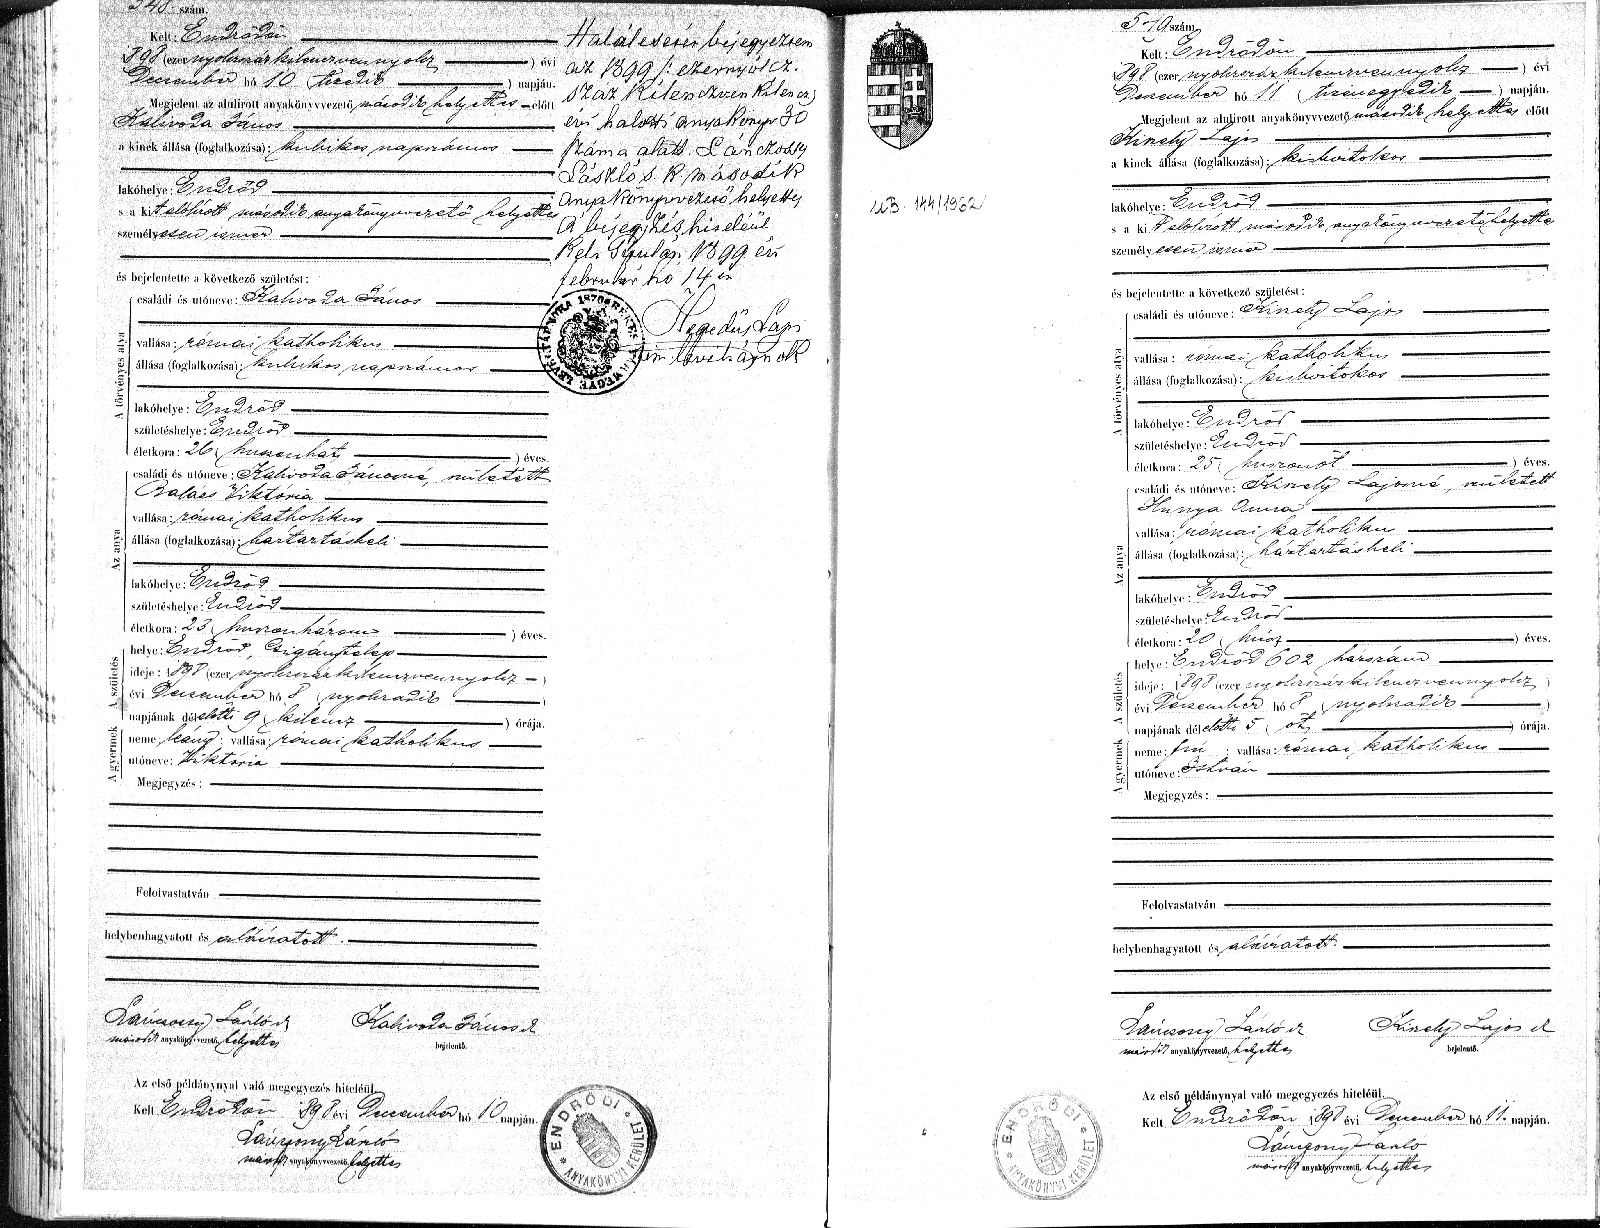 548. szám.
Kelt: Endrődön
1898 (ezer nyolczszáz kilenczvennyolcz ) évi
December hó 10 ( tizedik ) napján.
Megjelent az alulirott anyakönyvvezető második helyettes előtt
Kalivoda János
a kinek állása (foglalkozása): kubikos napszámos
lakóhelye: Endrőd
s a kit alólirott második anyakönyvvezető helyettes
személyesen ismer
és bejelentette a következő születést:
A törvényes atya
családi és utóneve: Kalivoda János
vallása: római katholikus
állása (foglalkozása): kubikos napszámos
lakóhelye: Endrőd
születéshelye: Endrőd
életkora: 26 ( huszonhat ) éves.
Az anya
családi és utóneve: Kalivoda Jánosné, született
Balács Viktória
vallása: római katholikus
állása (foglalkozása): háztartásbeli
lakóhelye: Endrőd
születéshelye: Endrőd
életkora: 23 ( huszonhárom ) éves.
A születés
helye: Endrőd, Czigánytelep
ideje: 1898 (ezer nyolczszáz kilenczvennyolcz )
évi December hó 8 ( nyolczadik )
napjának délelőtti 9 ( kilencz ) órája.
A gyermek
neme: leány; vallása: római katholikus
utóneve: Viktória
Megjegyzés:
Felolvastatván
helybenhagyatott és aláiratott.
Lánczossy László sk Kalivoda János sk
második anyakönyvvezető, helyettes bejelentő.
Az első példánynyal való megegyezés hiteléül.
Kelt Endrődön 1898 évi December hó 10 napján.
Lánczossy László
második anyakönyvvezető, helyettes
ENDRŐDI
ANYAKÖNYVI KERÜLET
Halálesetét bejegyeztem
az 1899 /: ezernyolcz-
száz kilenczven kilencz)
évi halotti anyakönyv 30
száma alatt. Lánczossy
László s. k. második
anyakönyvvezető helyettes
A bejegyzés hiteléül
Kelt Gyulán, 1899 évi
február hó 14 én
Hegedűs Lajos
m. levéltárnok
UB. 144/1962
549 szám.
Kelt: Endrődön
1898 (ezer nyolczszáz kilenczvennyolcz ) évi
December hó 11 ( tizenegyedik ) napján.
Megjelent az alulirott anyakönyvvezető második helyettes előtt
Kinely Lajos
a kinek állása (foglalkozása): kisbirtokos
lakóhelye: Endrőd
s a kit alólirott második anyakönyvvezető helyettes
személyesen ismer
és bejelentette a következő születést:
A törvényes atya
családi és utóneve: Kinely Lajos
vallása: római katholikus
állása (foglalkozása): kisbirtokos
lakóhelye: Endrőd
születéshelye: Endrőd
életkora: 25 ( huszonöt ) éves.
Az anya
családi és utóneve: Kinely Lajosné, született
Hunya Anna
vallása: római katholikus
állása (foglalkozása): háztartásbeli
lakóhelye: Endrőd
születéshelye: Endrőd
életkora: 20 ( húsz ) éves.
A születés
helye: Endrőd 602 házszám
ideje: 1898 (ezer nyolczszáz kilenczvennyolcz )
évi December hó 8 ( nyolczadik )
napjának délelőtti 5 ( öt ) órája.
A gyermek
neme: fiu ; vallása: római katholikus
utóneve: István
Megjegyzés:
Felolvastatván
helybenhagyatott és aláiratott.
Lánczossy László sk Kinely Lajos sk
második anyakönyvvezető, helyettes bejelentő.
Az első példánynyal való megegyezés hiteléül.
Kelt Endrődön 1898 évi December hó 11. napján.
Lánczossy László
második anyakönyvvezető, helyettes
ENDRŐDI
ANYAKÖNYVI KERÜLET